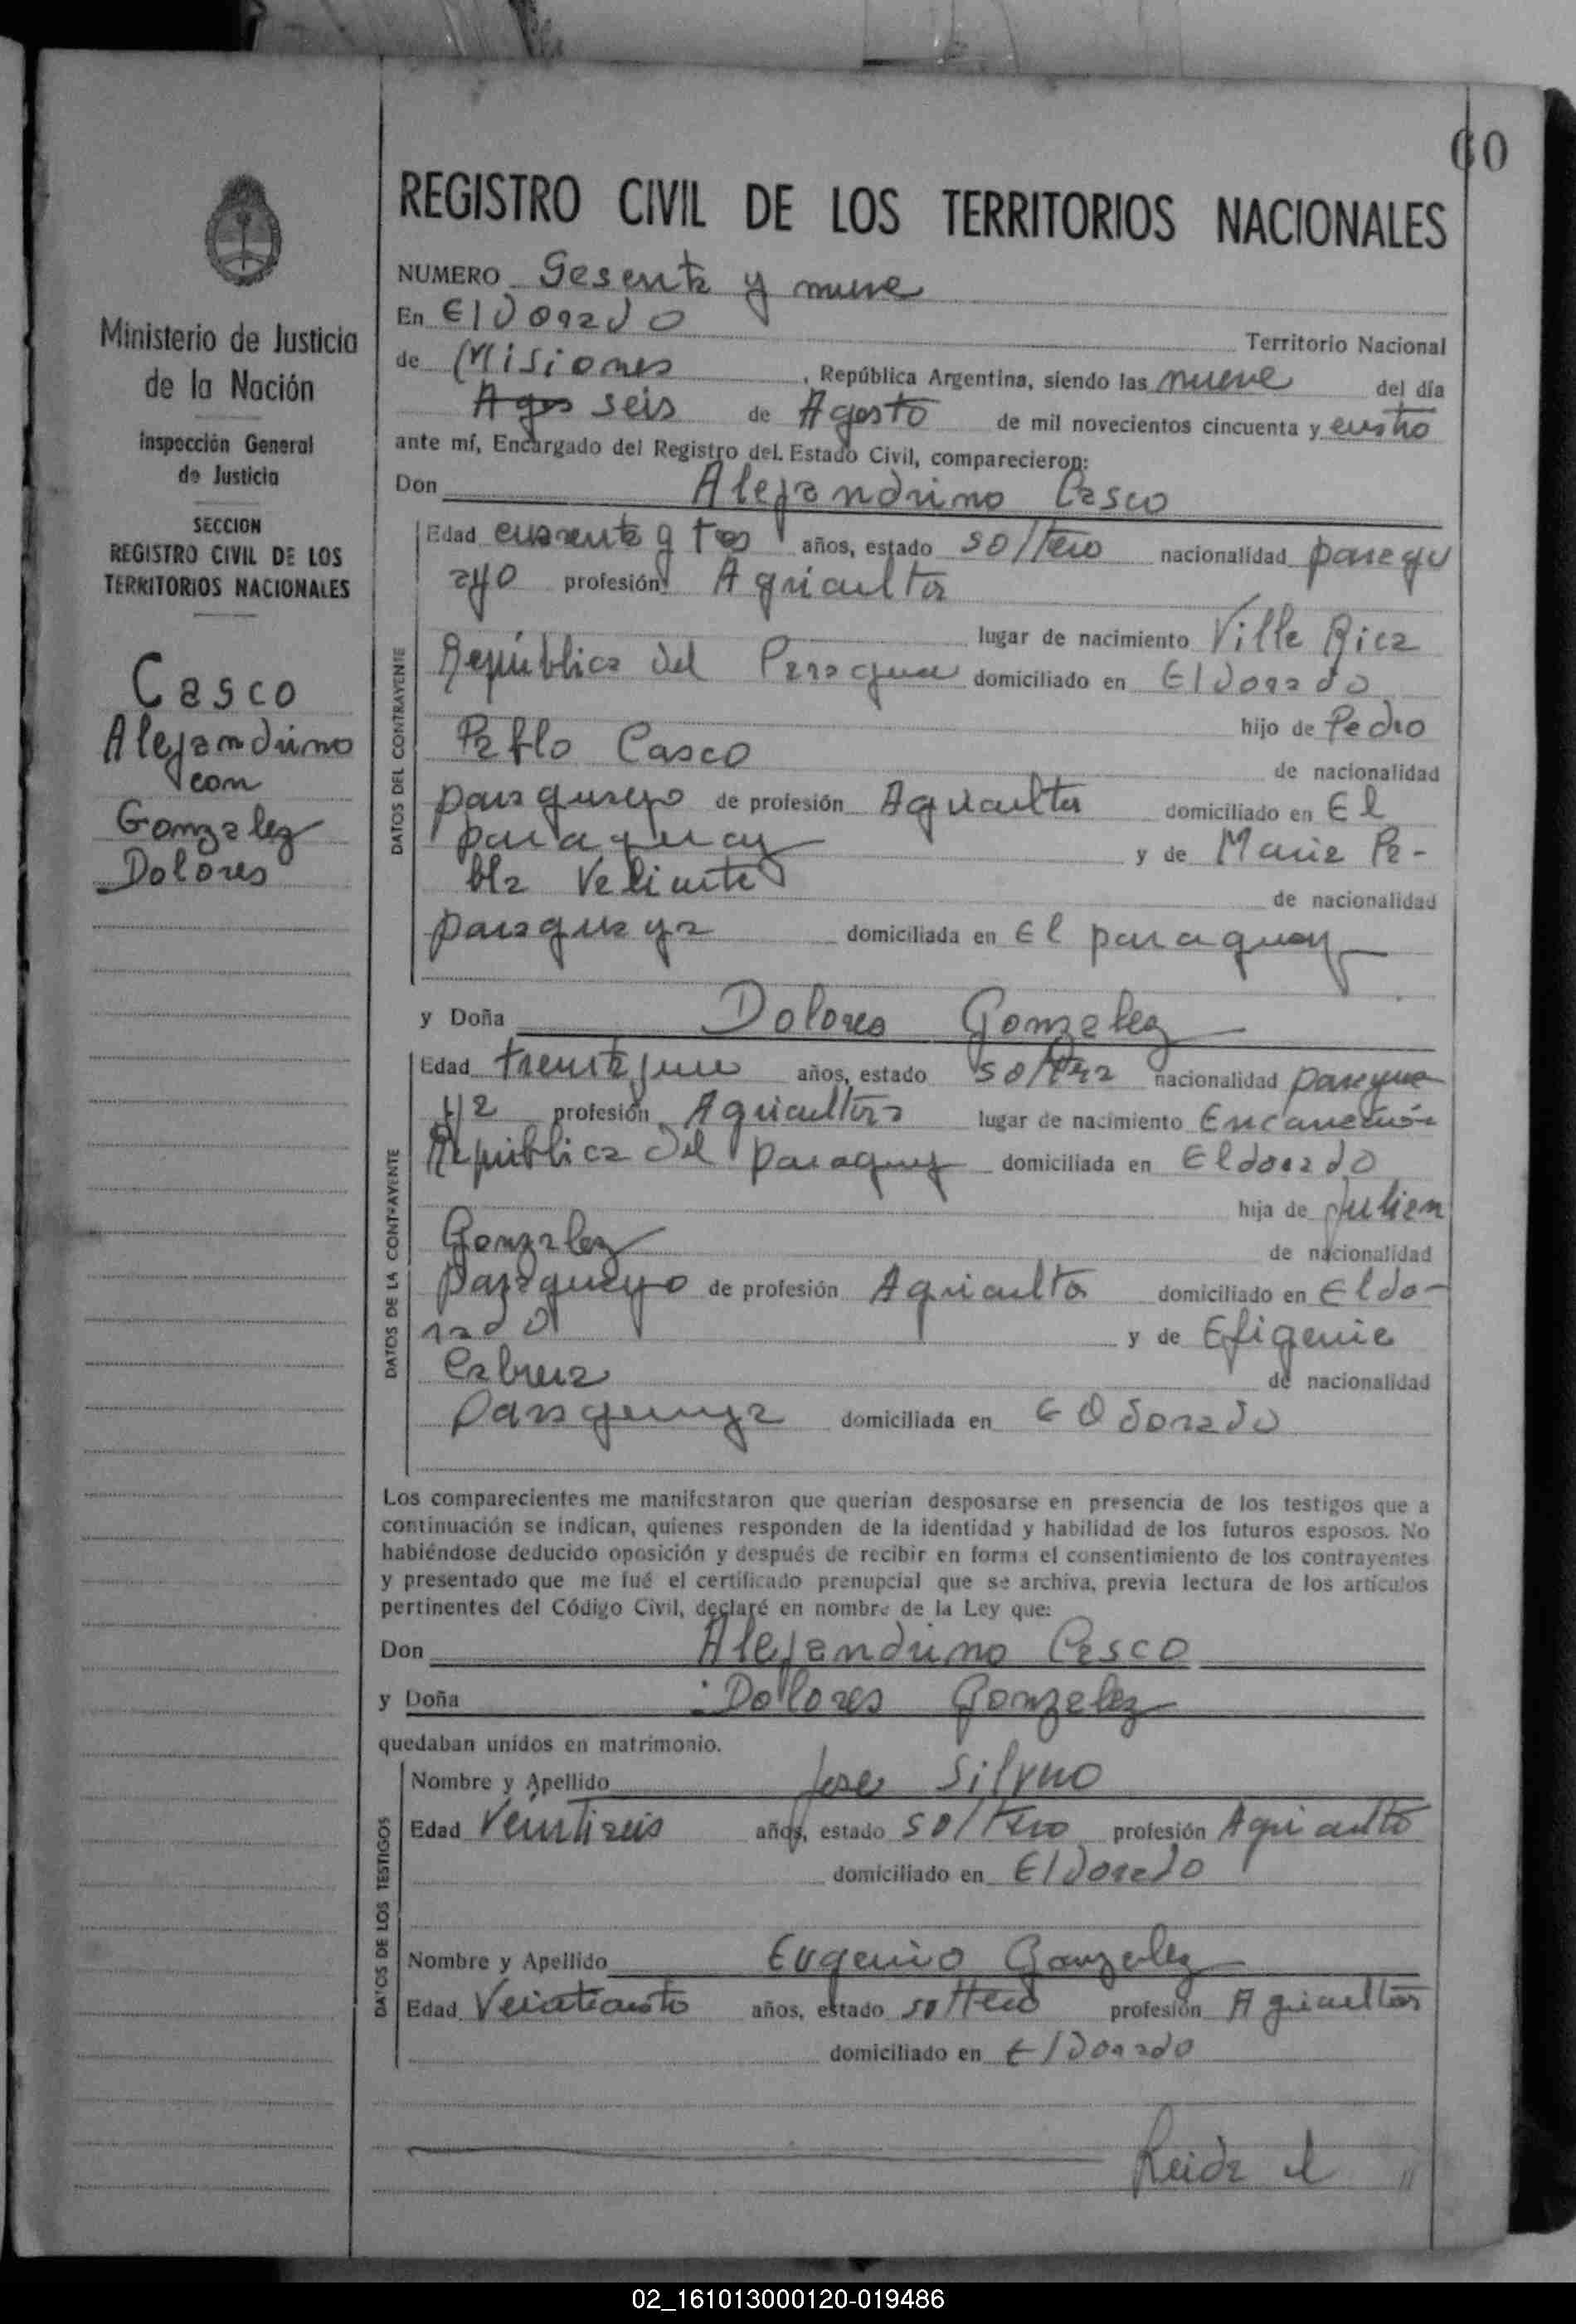 60
REGISTRO CIVIL DE LOS TERRITORIOS NACIONALES
NUMERO Sesenta y nueve
En Eldorado
Territorio Nacional
de Misiones, República Argentina, siendo las nueve del día
Agos seis de Agosto de mil novecientos cincuenta y cuatro
ante mí, Encargado del Registro del Estado Civil, comparecieron:
Don Alejandrino Casco
Edad cuarenta y tres años, estado soltero nacionalidad paragu
ayo profesión Agricultor
lugar de nacimiento Villa Rica
República del Paraguay domiciliado en Eldorado
hijo de Pedro
Pablo Casco
de nacionalidad
paraguayo de profesión Agricultor domiciliado en El
paraguay y de Maria Pa-
bla
de nacionalidad
paraguaya domiciliada en El paraguay
y Doña Dolores Gonzalez
Edad treinta años, estado soltera nacionalidad paragua
ya profesión Agricultora lugar de nacimiento Encarnación
República del paraguay domiciliada en Eldorado
hija de Julian
Gonzalez
de nacionalidad
paraguayo de profesión Agricultor domiciliado en Eldo-
rado y de Efigenia
Cabrera
de nacionalidad
paraguaya domiciliada en Eldorado
Los comparecientes me manifestaron que querían desposarse en presencia de los testigos que a
continuación se indican, quienes responden de la identidad y habilidad de los futuros esposos. No
habiéndose deducido oposición y después de recibir en forma el consentimiento de los contrayentes
y presentado que me fué el certificado prenupcial que se archiva, previa lectura de los artículos
pertinentes del Código Civil, declaré en nombre de la Ley que:
Don Alejandrino Casco
y Doña Dolores Gonzalez
quedaban unidos en matrimonio.
Nombre y Apellido Jose
Edad Veintiseis años, estado soltero profesión Agricultor
domiciliado en Eldorado
Nombre y Apellido Eugenio Gonzalez
Edad Veinticuatro años, estado soltero profesión Agricultor
domiciliado en Eldorado
Leida el
DATOS DEL CONTRAYENTE
DATOS DE LA CONTRAYENTE
DATOS DE LOS TESTIGOS
Ministerio de Justicia
de la Nación
Inspección General
de Justicia
SECCION
REGISTRO CIVIL DE LOS
TERRITORIOS NACIONALES
Casco
Alejandrino
con
Gonzalez
Dolores
02_161013000120-019486